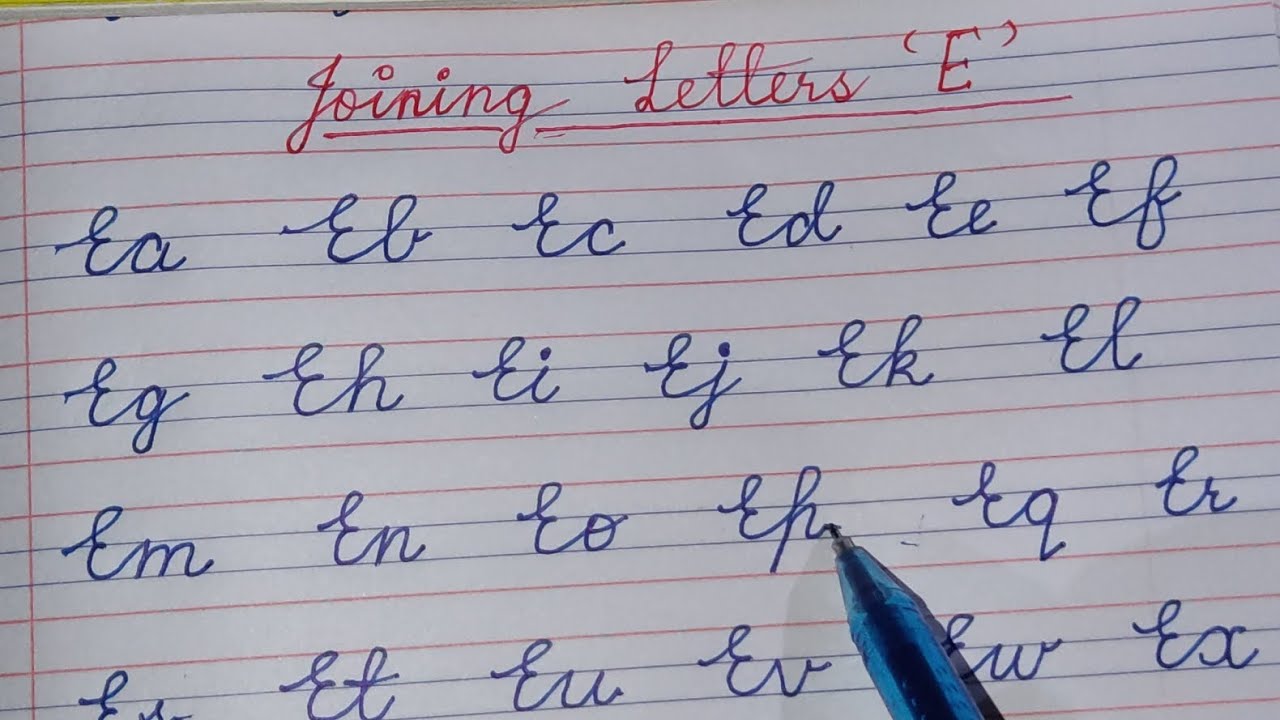 Joining Letters 'E'
Ea Eb Ec Ed Ee Ef
Eg Eh Ei Ej Ek El
Em En Eo Ep Eq Er
Es Et Eu Ev Ew Ex